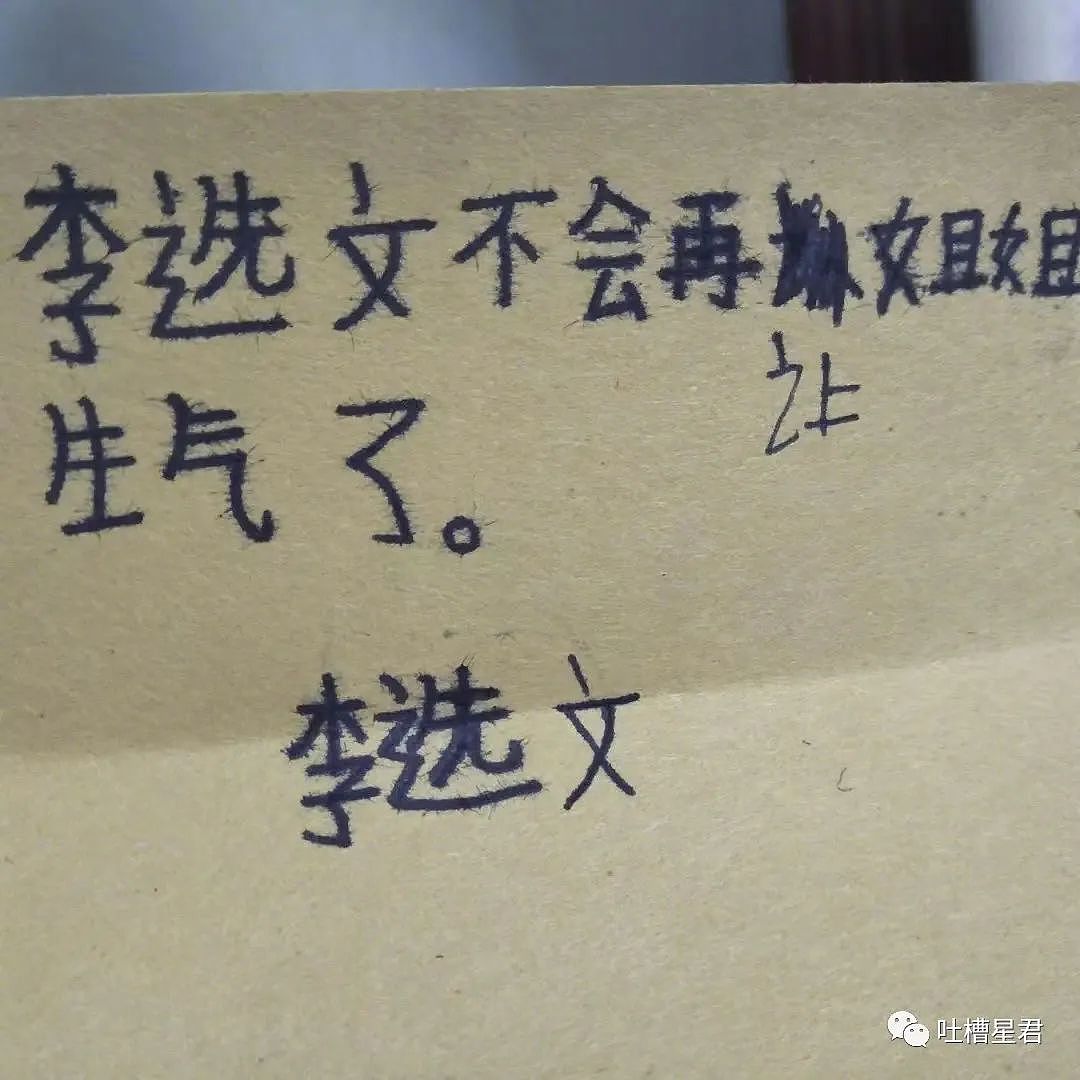 李选文不会再姐姐
让
生气了。
李选文
吐槽星君